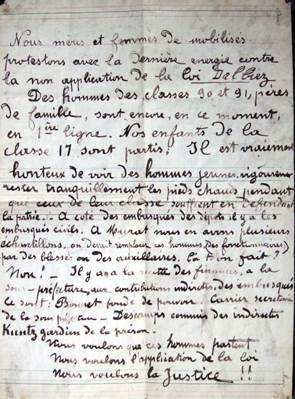 Nous mères et femmes de mobilisés
protestons avec la dernière energie contre
la non application de la loi Dalbiez
Des hommes des classes 90 et 91, pères
de famille, sont encore, en ce moment,
en 1ère ligne. Nos enfants de la
classe 17 sont partis. Il est vraiment
honteux de voir des hommes jeunes, vigoureux
rester tranquillement les pieds chauds pendant
que ceux de leur classe souffrent en défendant
la patrie.. A coté des embusqués des dépots il y a les
embusqués civils. A Murat nous en avons plusieurs
échantillons, on devrait remplacer ces hommes, (des fonctionnaires)
par des blessés ou des auxiliaires. L'a-t-on fait?
Non! _ Il y en a à la recette des finances, à la
sous-préfecture, aux contributions indirectes, des embusqués
ce sont: Bonnet fondé de pouvoir _ Carrier secrétaire
de la sous préfecture _ Descamps commis des indirectes
Kuntz gardien de la prison!
Nous voulons que ces hommes partent
Nous voulons l'application de la loi
Nous voulons la Justice !!